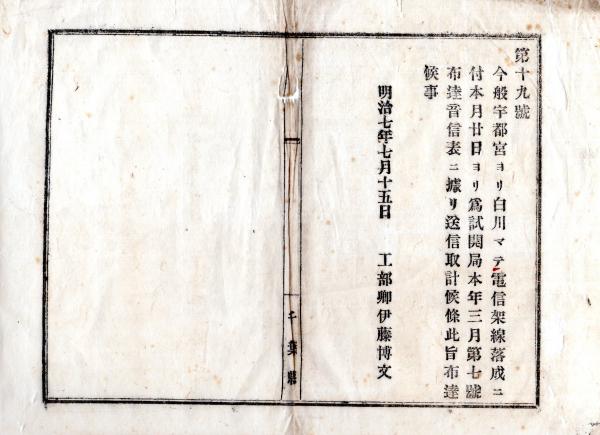 第十九號
今般宇都宮ヨリ白川マテ電信架線落成ニ
付本月廿日ヨリ爲試開局本年三月第七號
布達音信表ニ據リ送信取計候條此旨布達
候事
明治七年七月十五日 工部卿伊藤博文
千葉縣